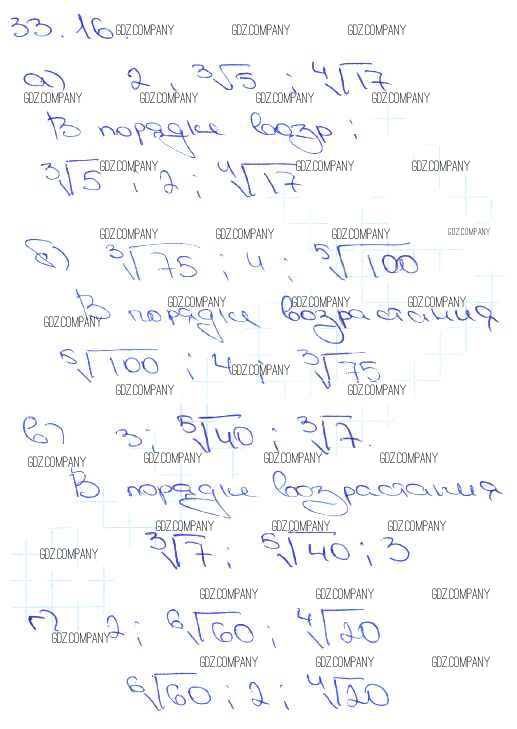 33.16.
GDZ.COMPANY GDZ.COMPANY GDZ.COMPANY
а) 2 ; ∛5 ; ∜17
GDZ.COMPANY GDZ.COMPANY GDZ.COMPANY GDZ.COMPANY
В порядке возр ;
GDZ.COMPANY GDZ.COMPANY GDZ.COMPANY
∛5 ; 2 ; ∜17
GDZ.COMPANY GDZ.COMPANY GDZ.COMPANY GDZ.COMPANY
б) ∛75 ; 4 ; ⁵√100
GDZ.COMPANY GDZ.COMPANY GDZ.COMPANY
В порядке возрастания
GDZ.COMPANY
⁵√100 ; 4 ; ∛75
GDZ.COMPANY
GDZ.COMPANY GDZ.COMPANY GDZ.COMPANY
в) 3 ; ⁵√40 ; ∛7.
GDZ.COMPANY GDZ.COMPANY GDZ.COMPANY GDZ.COMPANY
В порядке возрастания
GDZ.COMPANY GDZ.COMPANY GDZ.COMPANY
∛7 ; ⁵√40 ; 3
GDZ.COMPANY
GDZ.COMPANY GDZ.COMPANY GDZ.COMPANY
г) 2 ; ⁶√60 ; ∜20
GDZ.COMPANY
GDZ.COMPANY GDZ.COMPANY GDZ.COMPANY
⁶√60 ; 2 ; ∜20